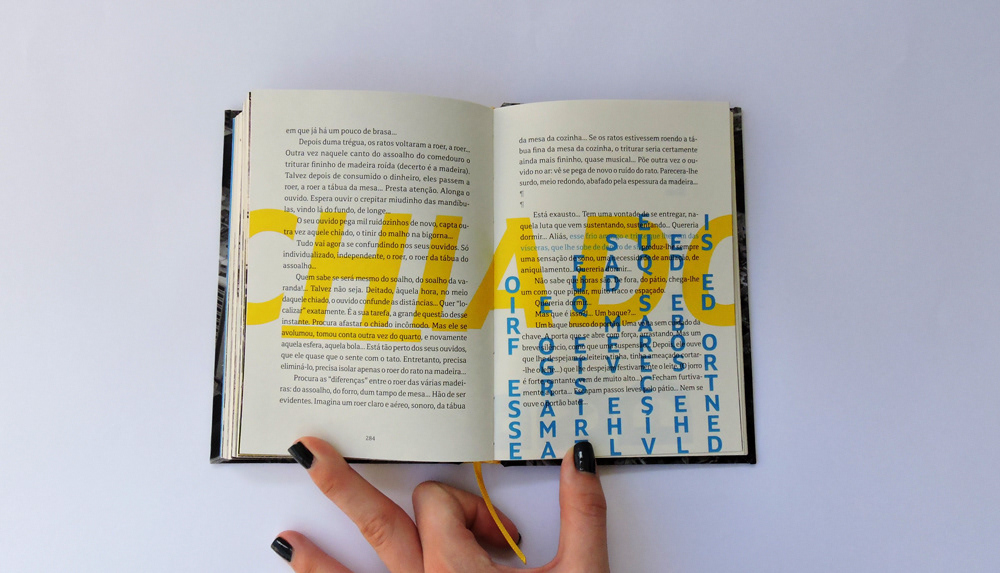 em que já há um pouco de brasa...
Depois duma trégua, os ratos voltaram a roer, a roer...
Outra vez naquele canto do assoalho do comedouro o
triturar fininho de madeira roída (decerto é a madeira).
Talvez depois de consumido o dinheiro, eles passem a
roer, a roer a tábua da mesa... Presta atenção. Alonga o
ouvido. Espera ouvir o crepitar miudinho das mandíbu-
las, vindo lá do fundo, de longe...
O seu ouvido pega mil ruidozinhos de novo, capta ou-
tra vez aquele chiado, o tinir do malho na bigorna...
Tudo vai agora se confundindo nos seus ouvidos. Só
individualizado, independente, o roer, o roer da tábua do
assoalho...
Quem sabe se será mesmo do soalho, do soalho da va-
randa!... Talvez não seja. Deitado, àquela hora, no meio
daquele chiado, o ouvido confunde as distâncias... Quer "lo-
calizar" exatamente. É a sua tarefa, a grande questão desse
instante. Procura afastar o chiado incômodo. Mas ele se
avolumou, tomou conta outra vez do quarto, e novamente
aquela esfera, aquela bola... Está tão perto dos seus ouvidos,
que ele quase que o sente com o tato. Entretanto, precisa
eliminá-lo, precisa isolar apenas o roer do rato na madeira...
Procura as "diferenças" entre o roer das várias madei-
ras: do assoalho, do forro, dum tampo de mesa... Hão de ser
evidentes. Imagina um roer claro e aéreo, sonoro, da tábua
284
CHIADO
da mesa da cozinha... Se os ratos estivessem roendo a tá-
bua fina da mesa da cozinha, o triturar seria certamente
ainda mais fininho, quase musical... Põe outra vez o ou-
vido no ar: vê se pega de novo o ruído do rato. Parecera-lhe
surdo, meio redondo, abafado pela espessura da madeira...
¶
¶
Está exausto... Tem uma vontade de se entregar, na-
quela luta que vem sustentando, sustentando... Quereria
dormir... Aliás, esse frio amargo e triste que lhe vem das
vísceras, que lhe sobe de dentro de si, produz-lhe sempre
uma sensação de sono, uma necessidade de anulação, de
aniquilamento... Quereria dormir...
Não sabe que horas são. De fora, do pátio, chega-lhe
um como que piado, muito fraco e espaçado.
Quereria dormir...
Mas que é isso?... Um baque?...
Um baque brusco do portão. Uma volta sem cuidado da
chave. A porta que se abre com força, arrastando. Mas um
breve silêncio, como que um suspenso... Depois, ele ouve
que lhe despejam o leite (o leiteiro tinha, tinha ameaçado cortar-
-lhe o leite...) que lhe despejam festivamente o leite. (O jorro
é forte, cantante, vem de muito alto...) – Fecham furtiva-
mente a porta... Escapam passos leves pelo pátio... Nem se
ouve o portão bater...
ESSE FRIO
AMARGO E
RISTE QUE
LHE VEM DAS
VISCERAS QUE
LHE SOBE DE
DENTRO DE SI